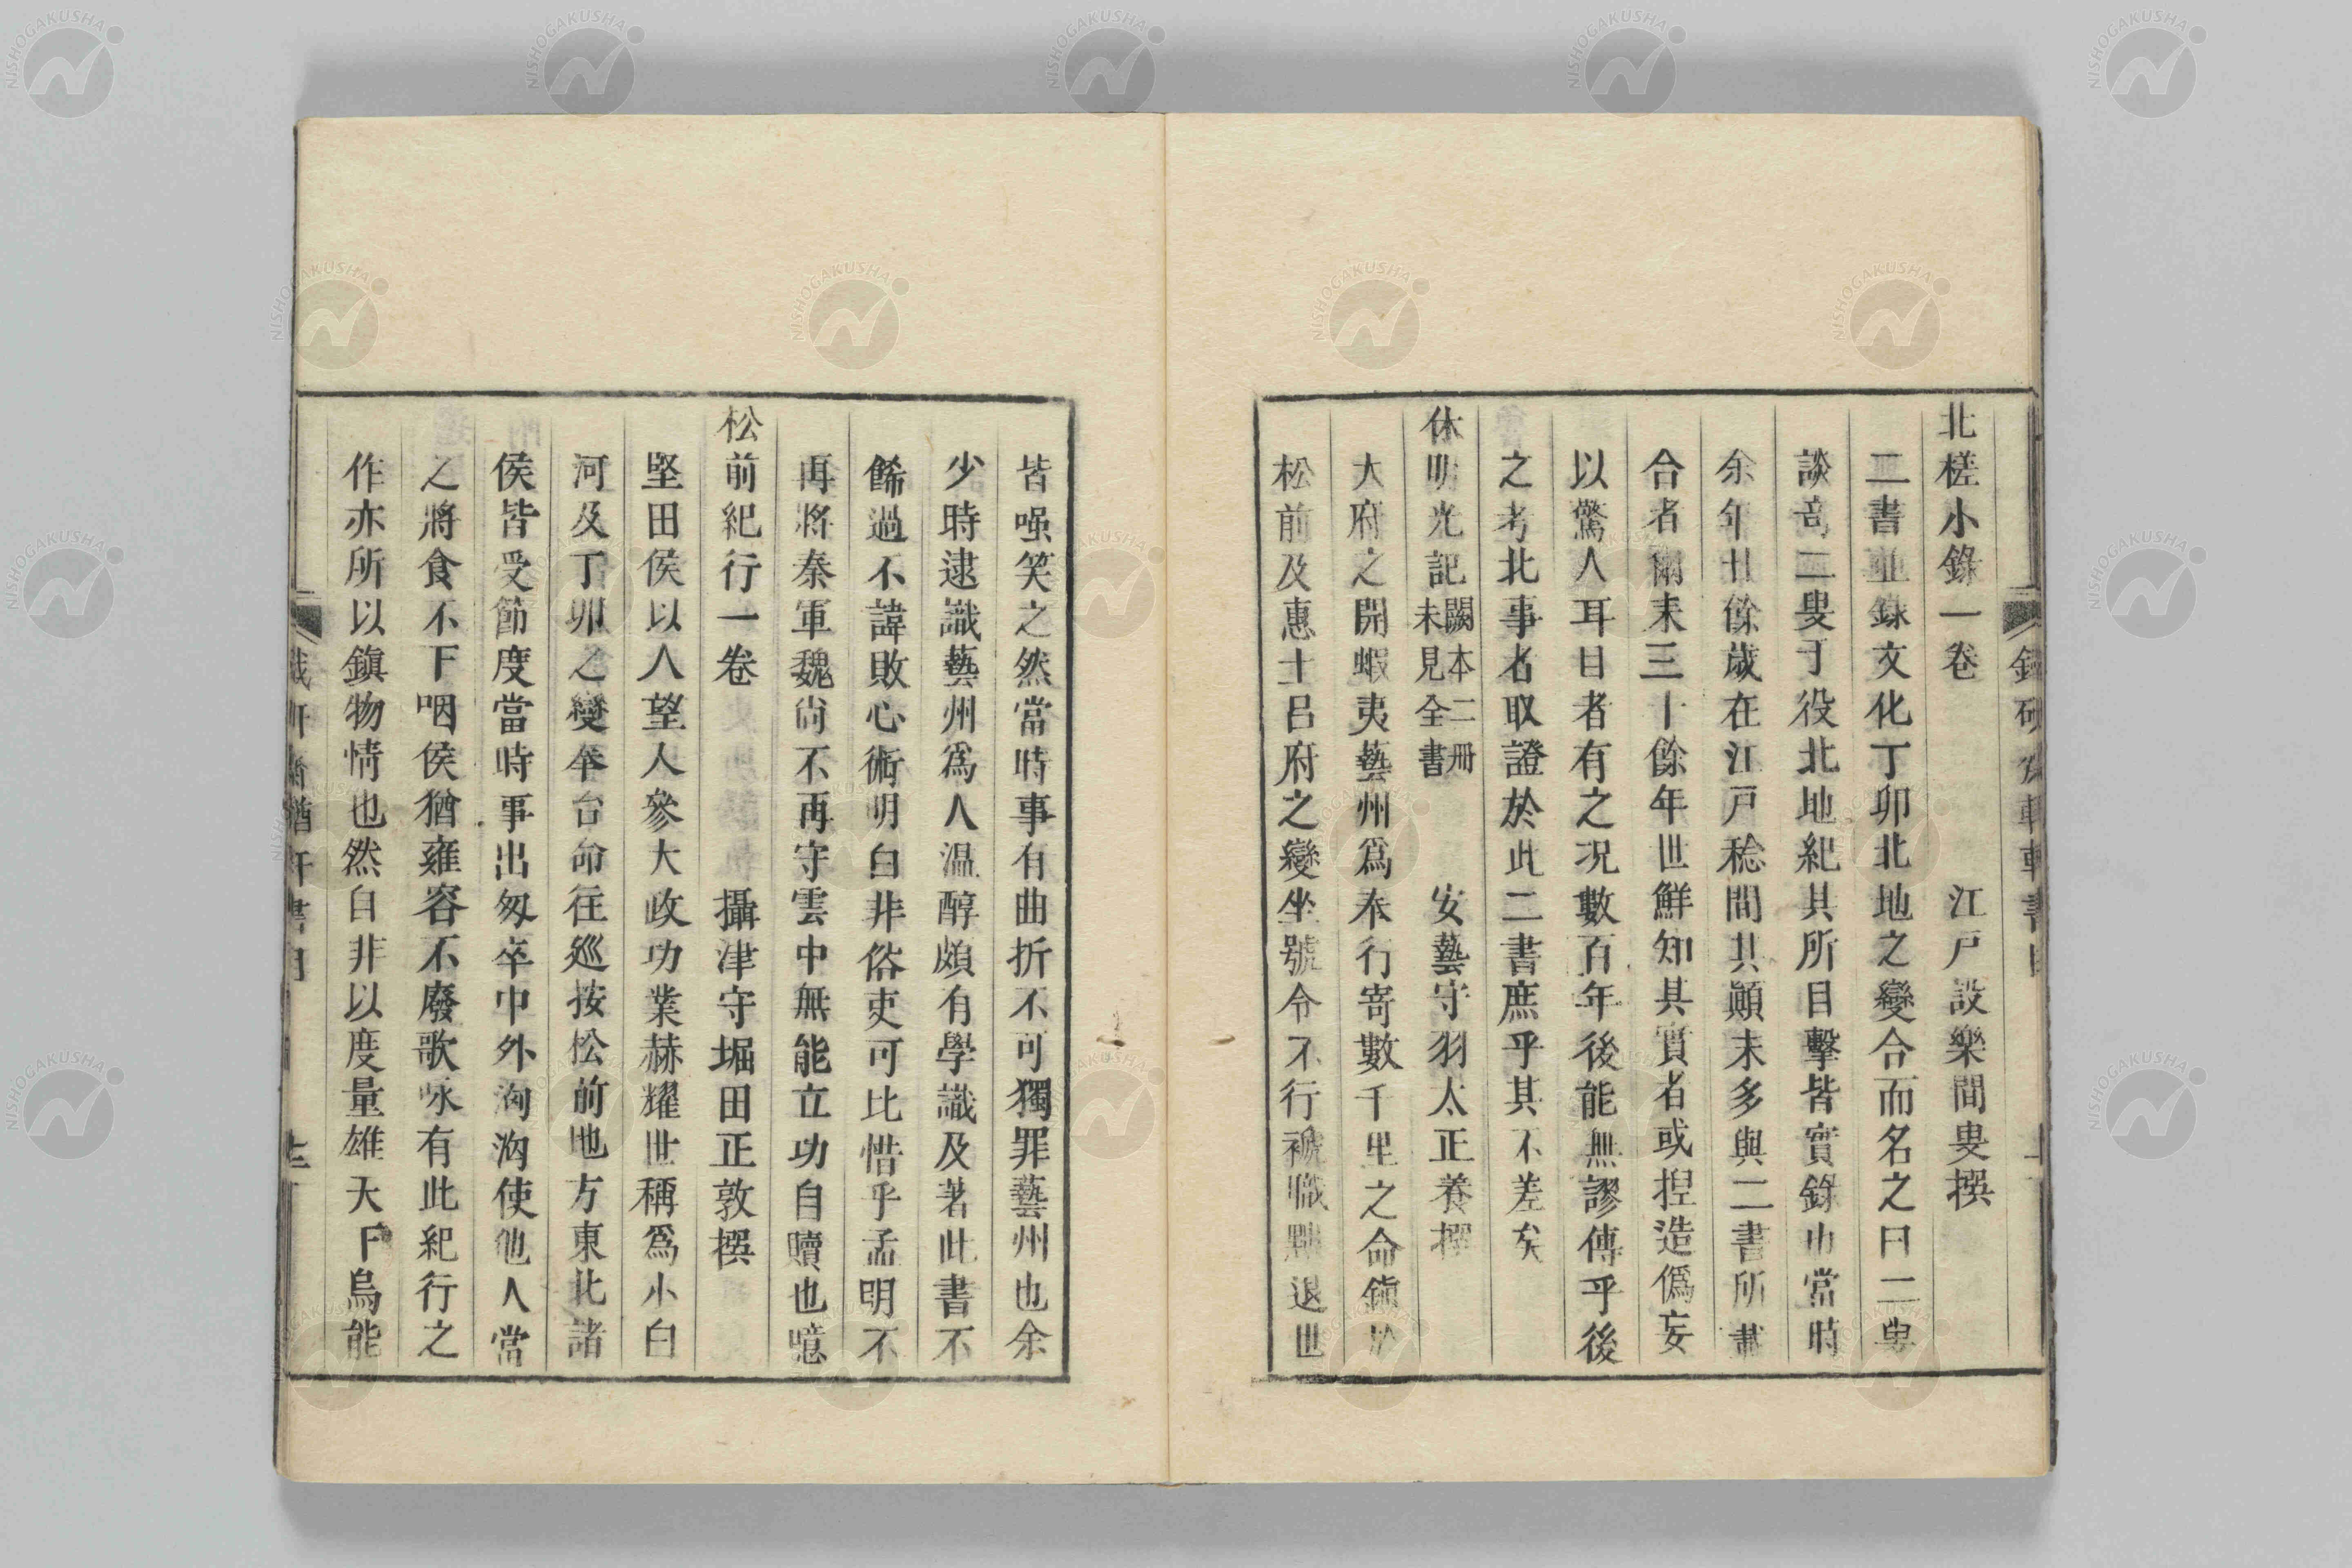 北槎小錄一卷　江戸設樂間叟撰
二書並錄文化丁卯北地之變合而名之曰二叟
談竒二叟丁役北地紀其所目擊皆實錄也當時
余年廿餘歲在江戸稔聞其顚末多與二書所載
合者爾來三十餘年世鮮知其實者或揑造僞妄
以驚人耳目者有之况數百年後能無謬傳乎後
之考北事者取證於此二書庶乎其不差矣
休明光記闕本二册未見全書　安藝守羽太正養撰
大府之開蝦夷藝州爲奉行寄數千里之命鎭於
松前及惠土呂府之變坐號令不行褫職黜退世
皆嗤笑之然當時事有曲折不可獨罪藝州也余
少時逮識藝州爲人温醇頗有學識及著此書不
餙過不諱敗心術明白非俗吏可比惜乎孟明不
再將秦軍魏尙不再守雲中無能立功自贖也噫
松前紀行一卷　攝津守堀田正敦撰
堅田侯以人望人參大政功業赫耀世稱爲小白
河及丁卯之變奉台命往巡按松前地方東北諸
侯皆受節度當時事出匆卒中外洶洶使他人當
之將食不下咽侯猶雍容不廢歌咏有此紀行之
作亦所以鎭物情也然自非以度量雄天下烏能
NISHOGAKUSHA